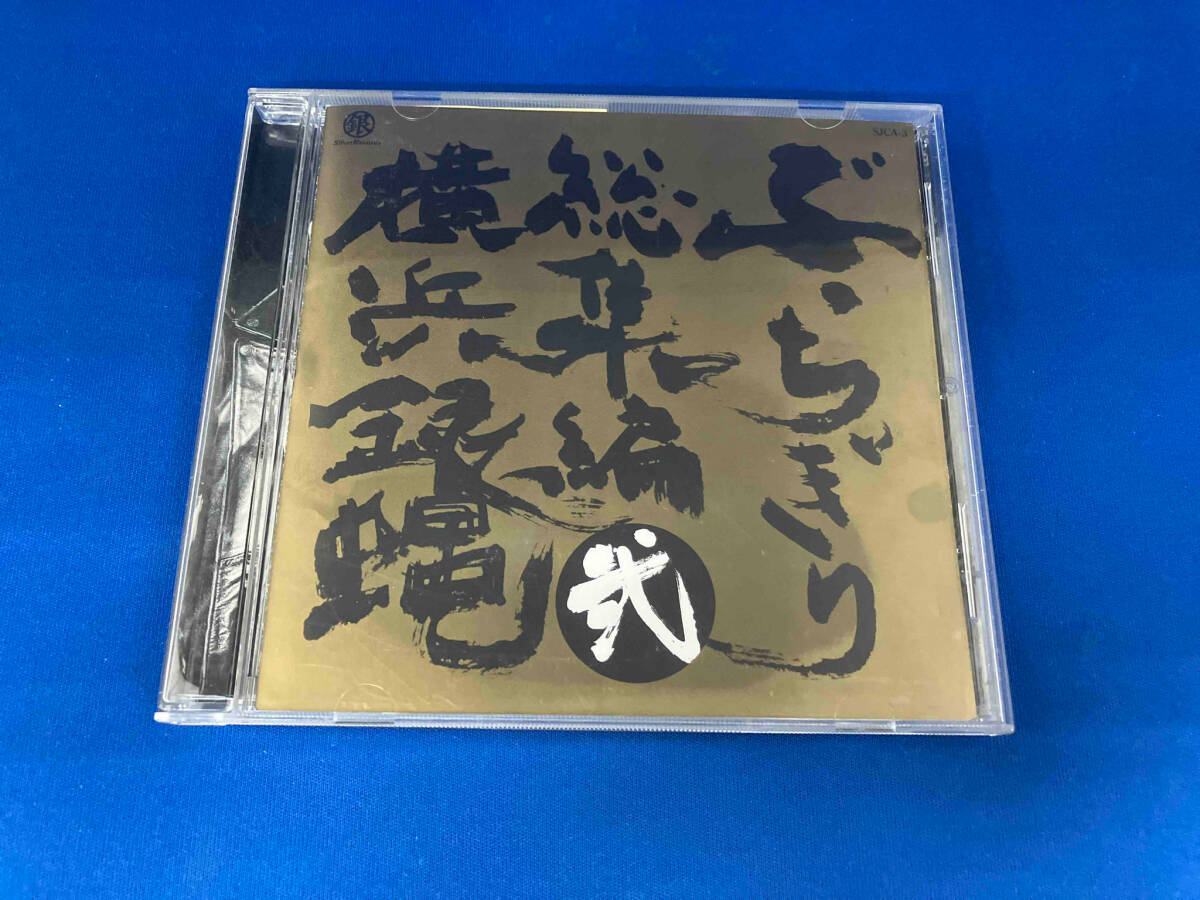 ぶっちぎり
総集編
弐
横浜銀蝿
銀
Silver Records
SJCA-3